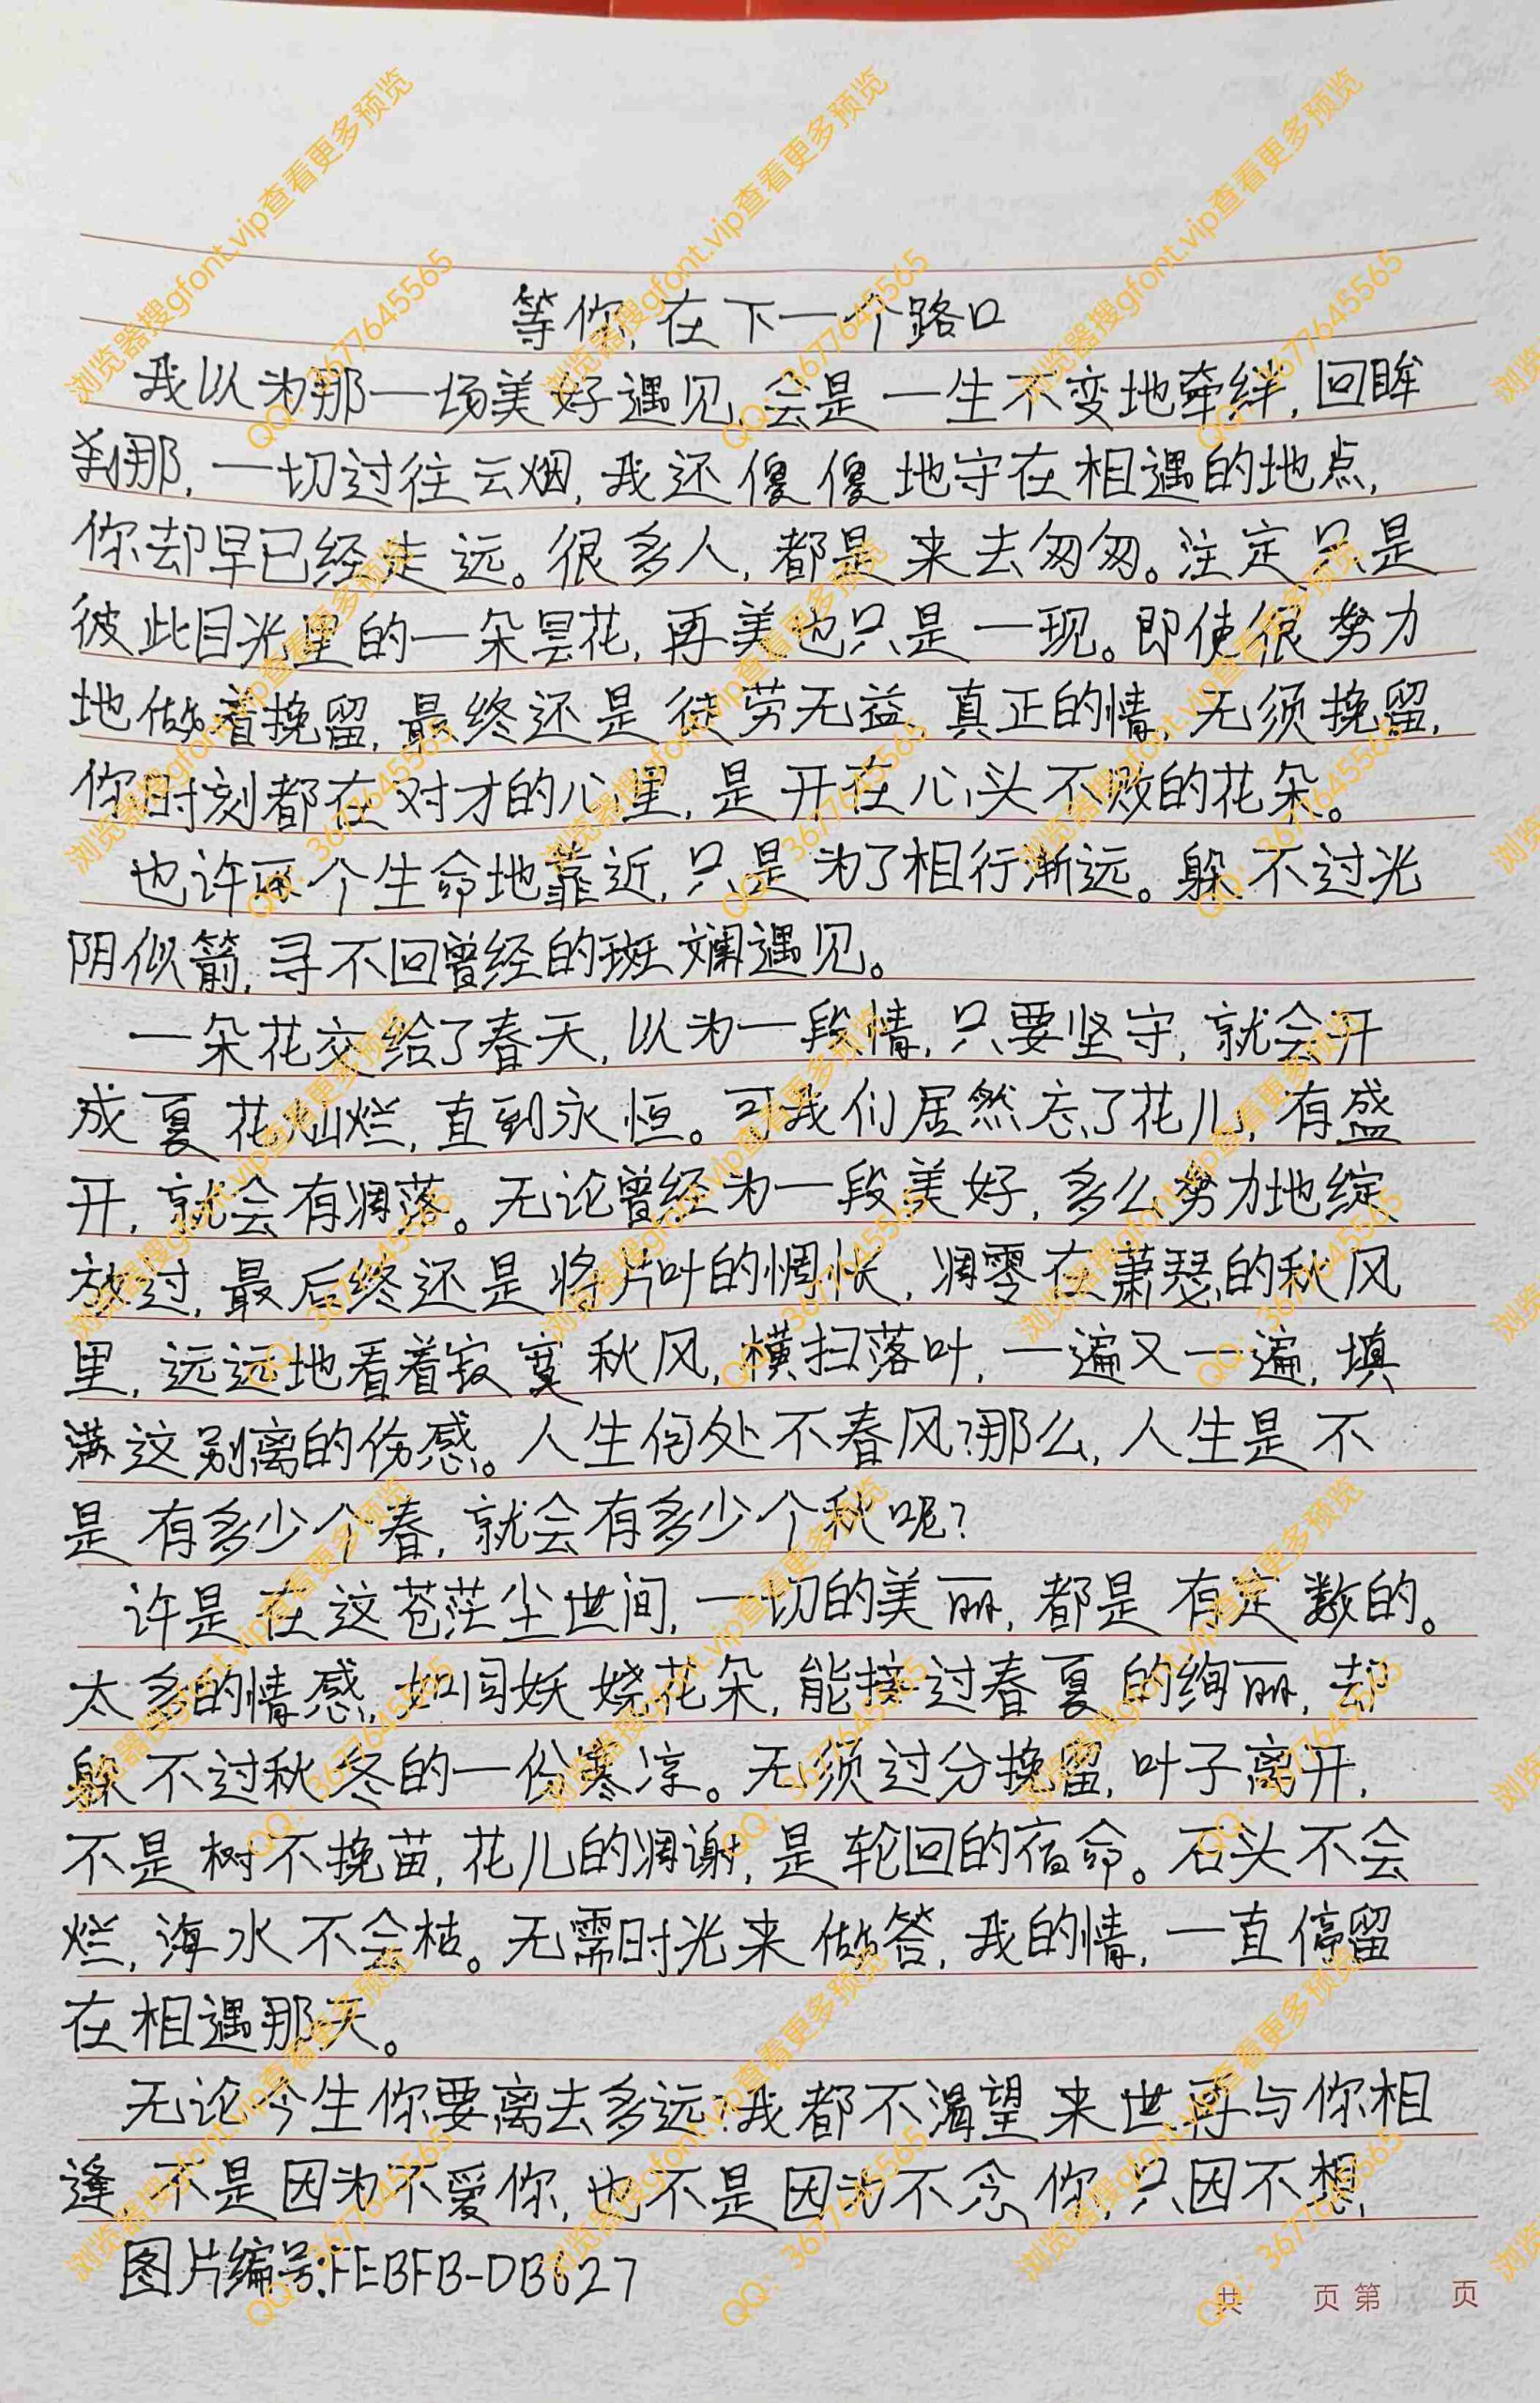 等你,在下一个路口
我以为那一场美好遇见,会是一生不变地牵绊,回眸
刹那,一切过往云烟,我还傻傻地守在相遇的地点,
你却早已经走远。很多人,都是来去匆匆。注定只是
彼此目光里的一朵昙花,再美也只是一现。即使很努力
地做着挽留,最终还是徒劳无益,真正的情,无须挽留,
你时刻都在对才的心里,是开在心头不败的花朵。
也许两个生命地靠近,只是为了相行渐远。躲不过光
阴似箭,寻不回曾经的斑斓遇见。
一朵花交给了春天,以为一段情,只要坚守,就会开
成夏花灿烂,直到永恒。可我们居然忘了花儿,有盛
开,就会有凋落。无论曾经为一段美好,多么努力地绽
放过,最后终还是将片叶的惆怅,凋零在萧瑟的秋风
里,远远地看着寂寞秋风,横扫落叶,一遍又一遍,填
满这别离的伤感。人生何处不春风?那么,人生是不
是有多少个春,就会有多少个秋呢?
许是在这苍茫尘世间,一切的美丽,都是有定数的。
太多的情感,如同妖娆花朵,能接过春夏的绚丽,却
躲不过秋冬的一份寒凉。无须过分挽留,叶子离开,
不是树不挽留,花儿的凋谢,是轮回的宿命。石头不会
烂,海水不会枯。无需时光来做答,我的情,一直停留
在相遇那天。
无论今生你要离去多远?我都不渴望来世再与你相
逢,不是因为不爱你,也不是因为不念你,只因不想
图片编号:FEBFB-DB627
共 页 第 页
浏览器搜gfont.vip查看更多预览
QQ:3677645565